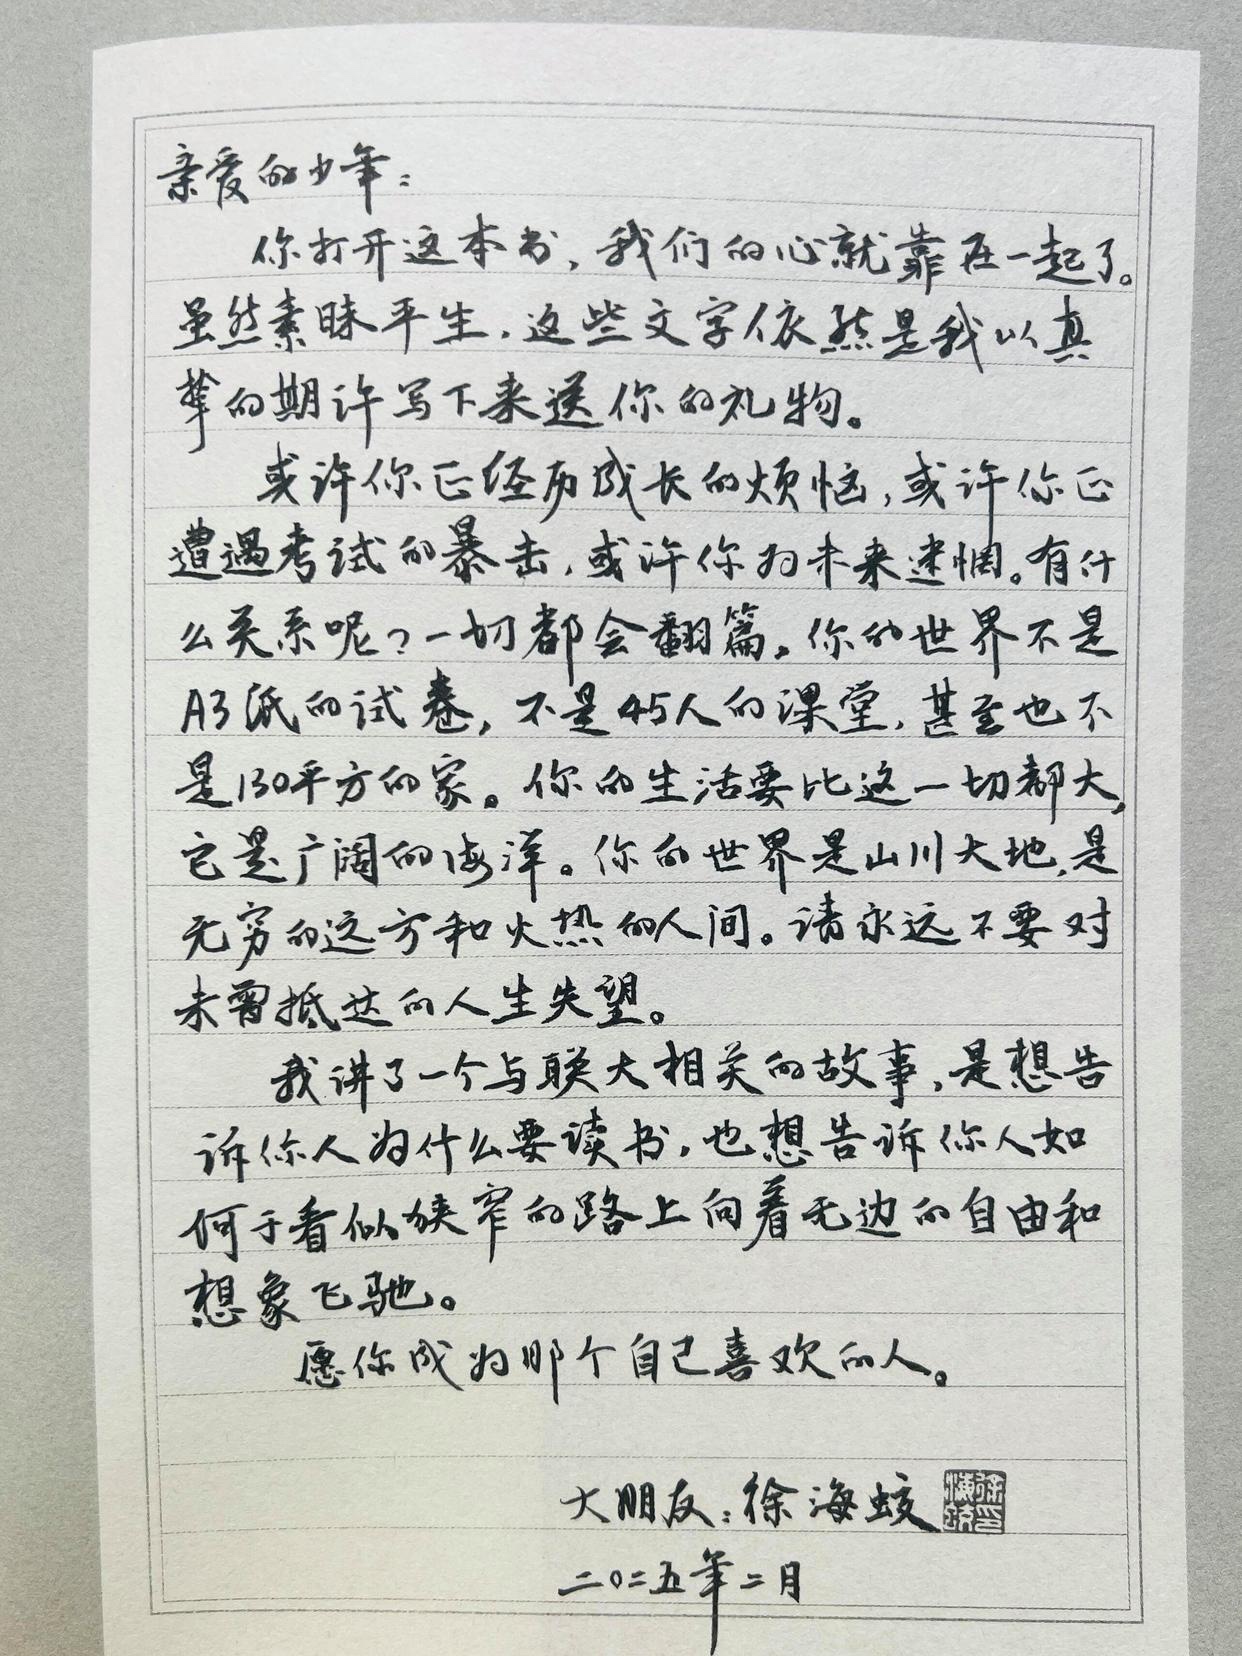 亲爱的少年：
你打开这本书，我们的心就靠在一起了。
虽然素昧平生，这些文字依然是我以真
挚的期许写下来送你的礼物。
或许你正经历成长的烦恼，或许你正
遭遇考试的暴击，或许你为未来迷惘。有什
么关系呢？一切都会翻篇。你的世界不是
A3纸的试卷，不是45人的课堂，甚至也不
是130平方的家。你的生活要比这一切都大，
它是广阔的海洋。你的世界是山川大地，是
无穷的远方和火热的人间。请永远不要对
未曾抵达的人生失望。
我讲了一个与联大相关的故事，是想告
诉你人为什么要读书，也想告诉你人如
何于看似狭窄的路上向着无边的自由和
想象飞驰。
愿你成为那个自己喜欢的人。
大朋友：徐海蛟
二〇二五年二月